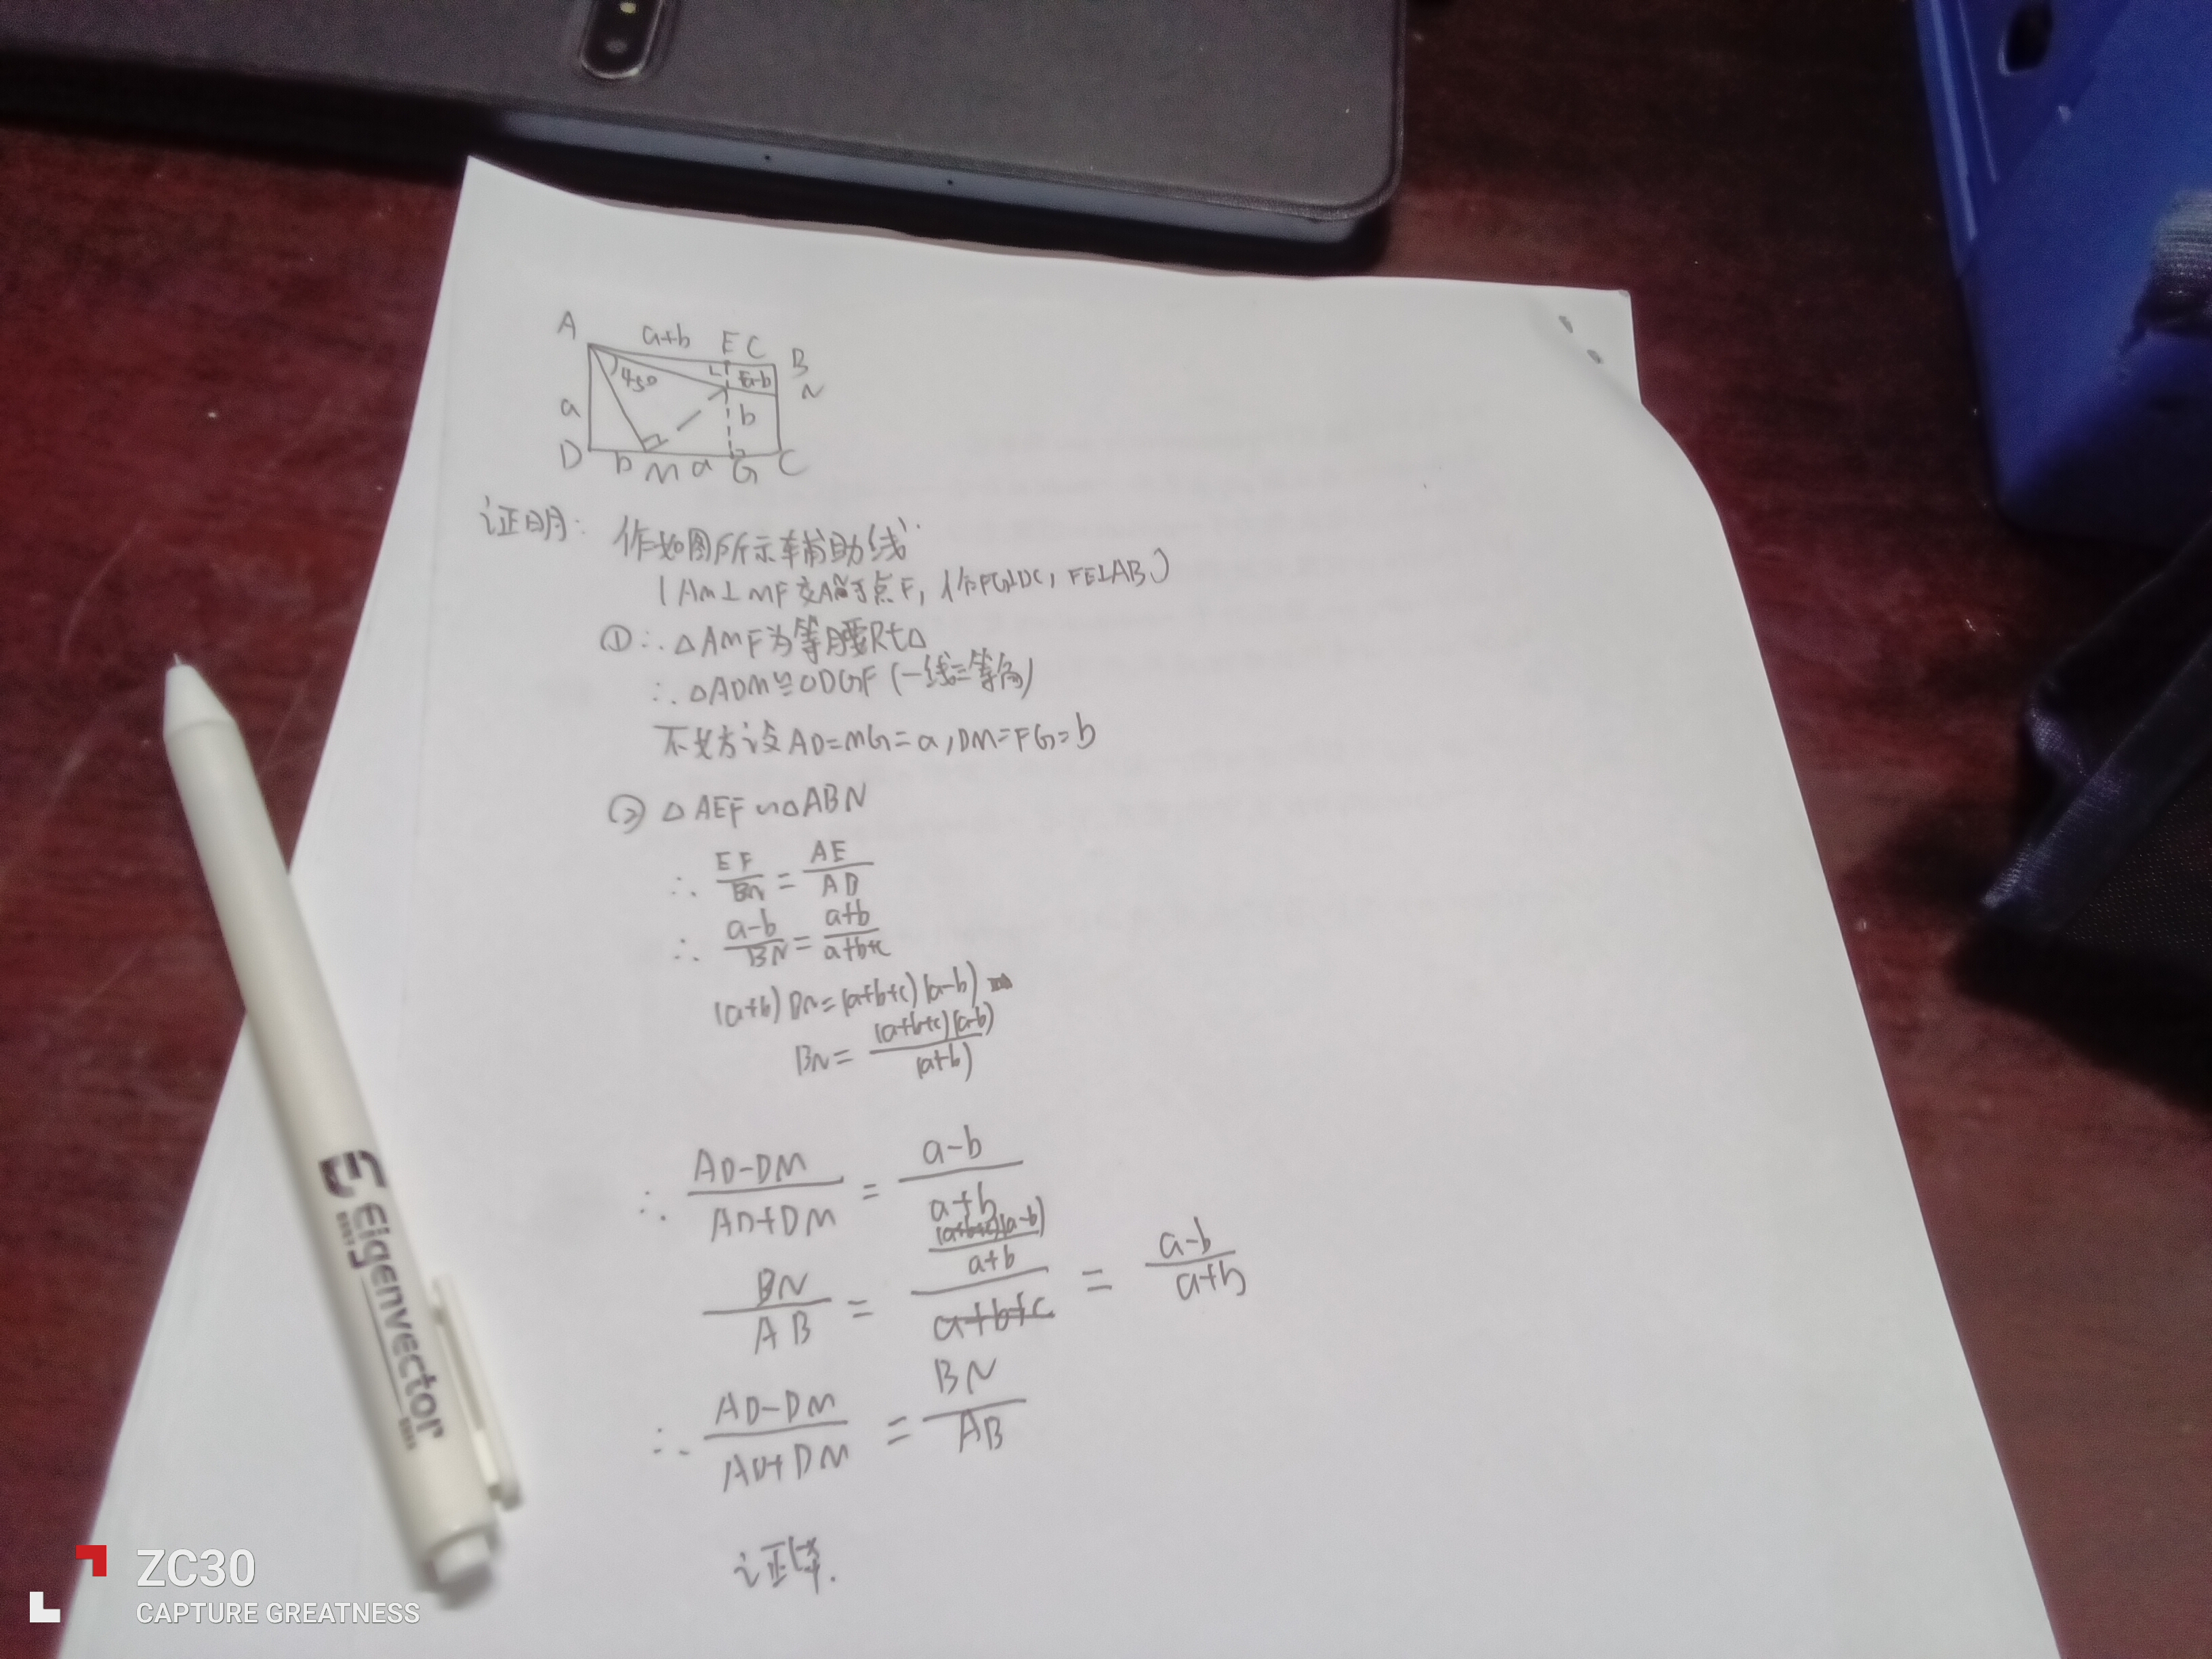 A a+b E C B
45° a-b N
a b
D b M a G C
证明: 作如图所示辅助线
(AM⊥MF交AN于点F, 作FG⊥DC, FE⊥AB)
①∴△AMF为等腰Rt△
∴△ADM≌△DGF(一线三等角)
不妨设AD=MG=a,DM=FG=b
② △AEF∽△ABN
∴ EF/BN = AE/AB
∴ a-b/BN = a+b/a+b+c
(a+b)BN=(a+b+c)(a-b)
BN= (a+b+c)(a-b)/(a+b)
∴ AD-DM/AD+DM = a-b/a+b
BN/AB = (a+b+c)(a-b)/a+b/a+b+c = a-b/a+b
∴ AD-DM/AD+DM = BN/AB
证毕.
Eigenvector
ZC30
CAPTURE GREATNESS